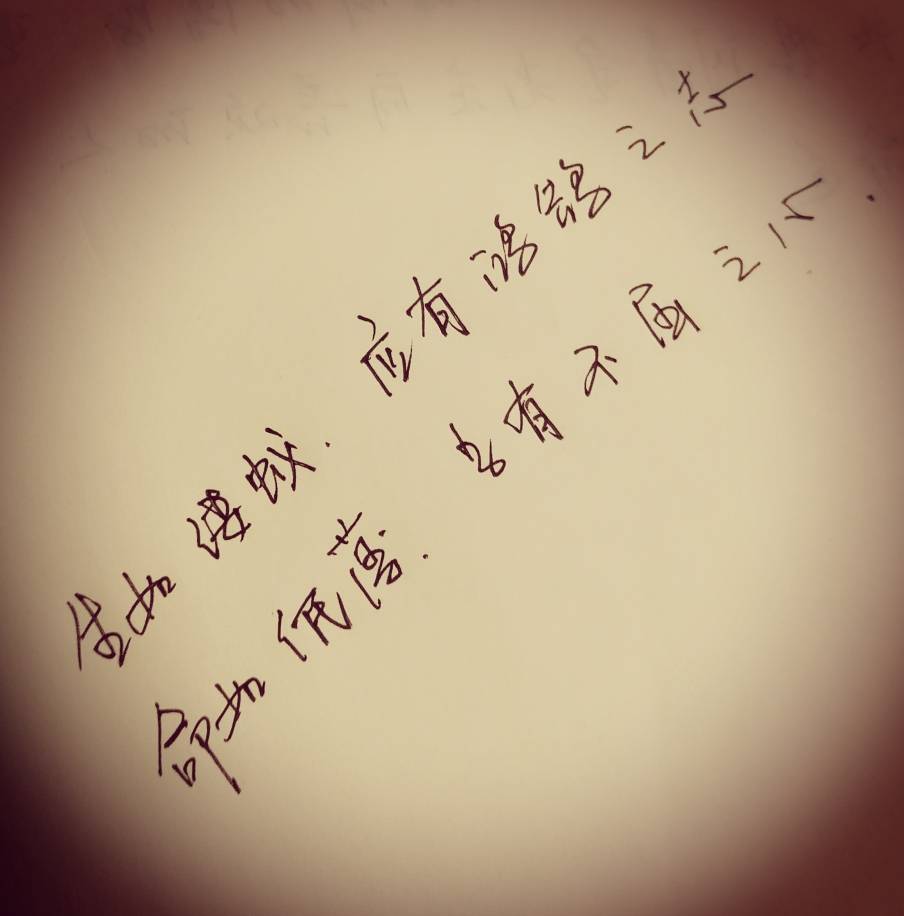 生如蝼蚁.应有鸿鹄之志
命如低落.也有不屈之心.